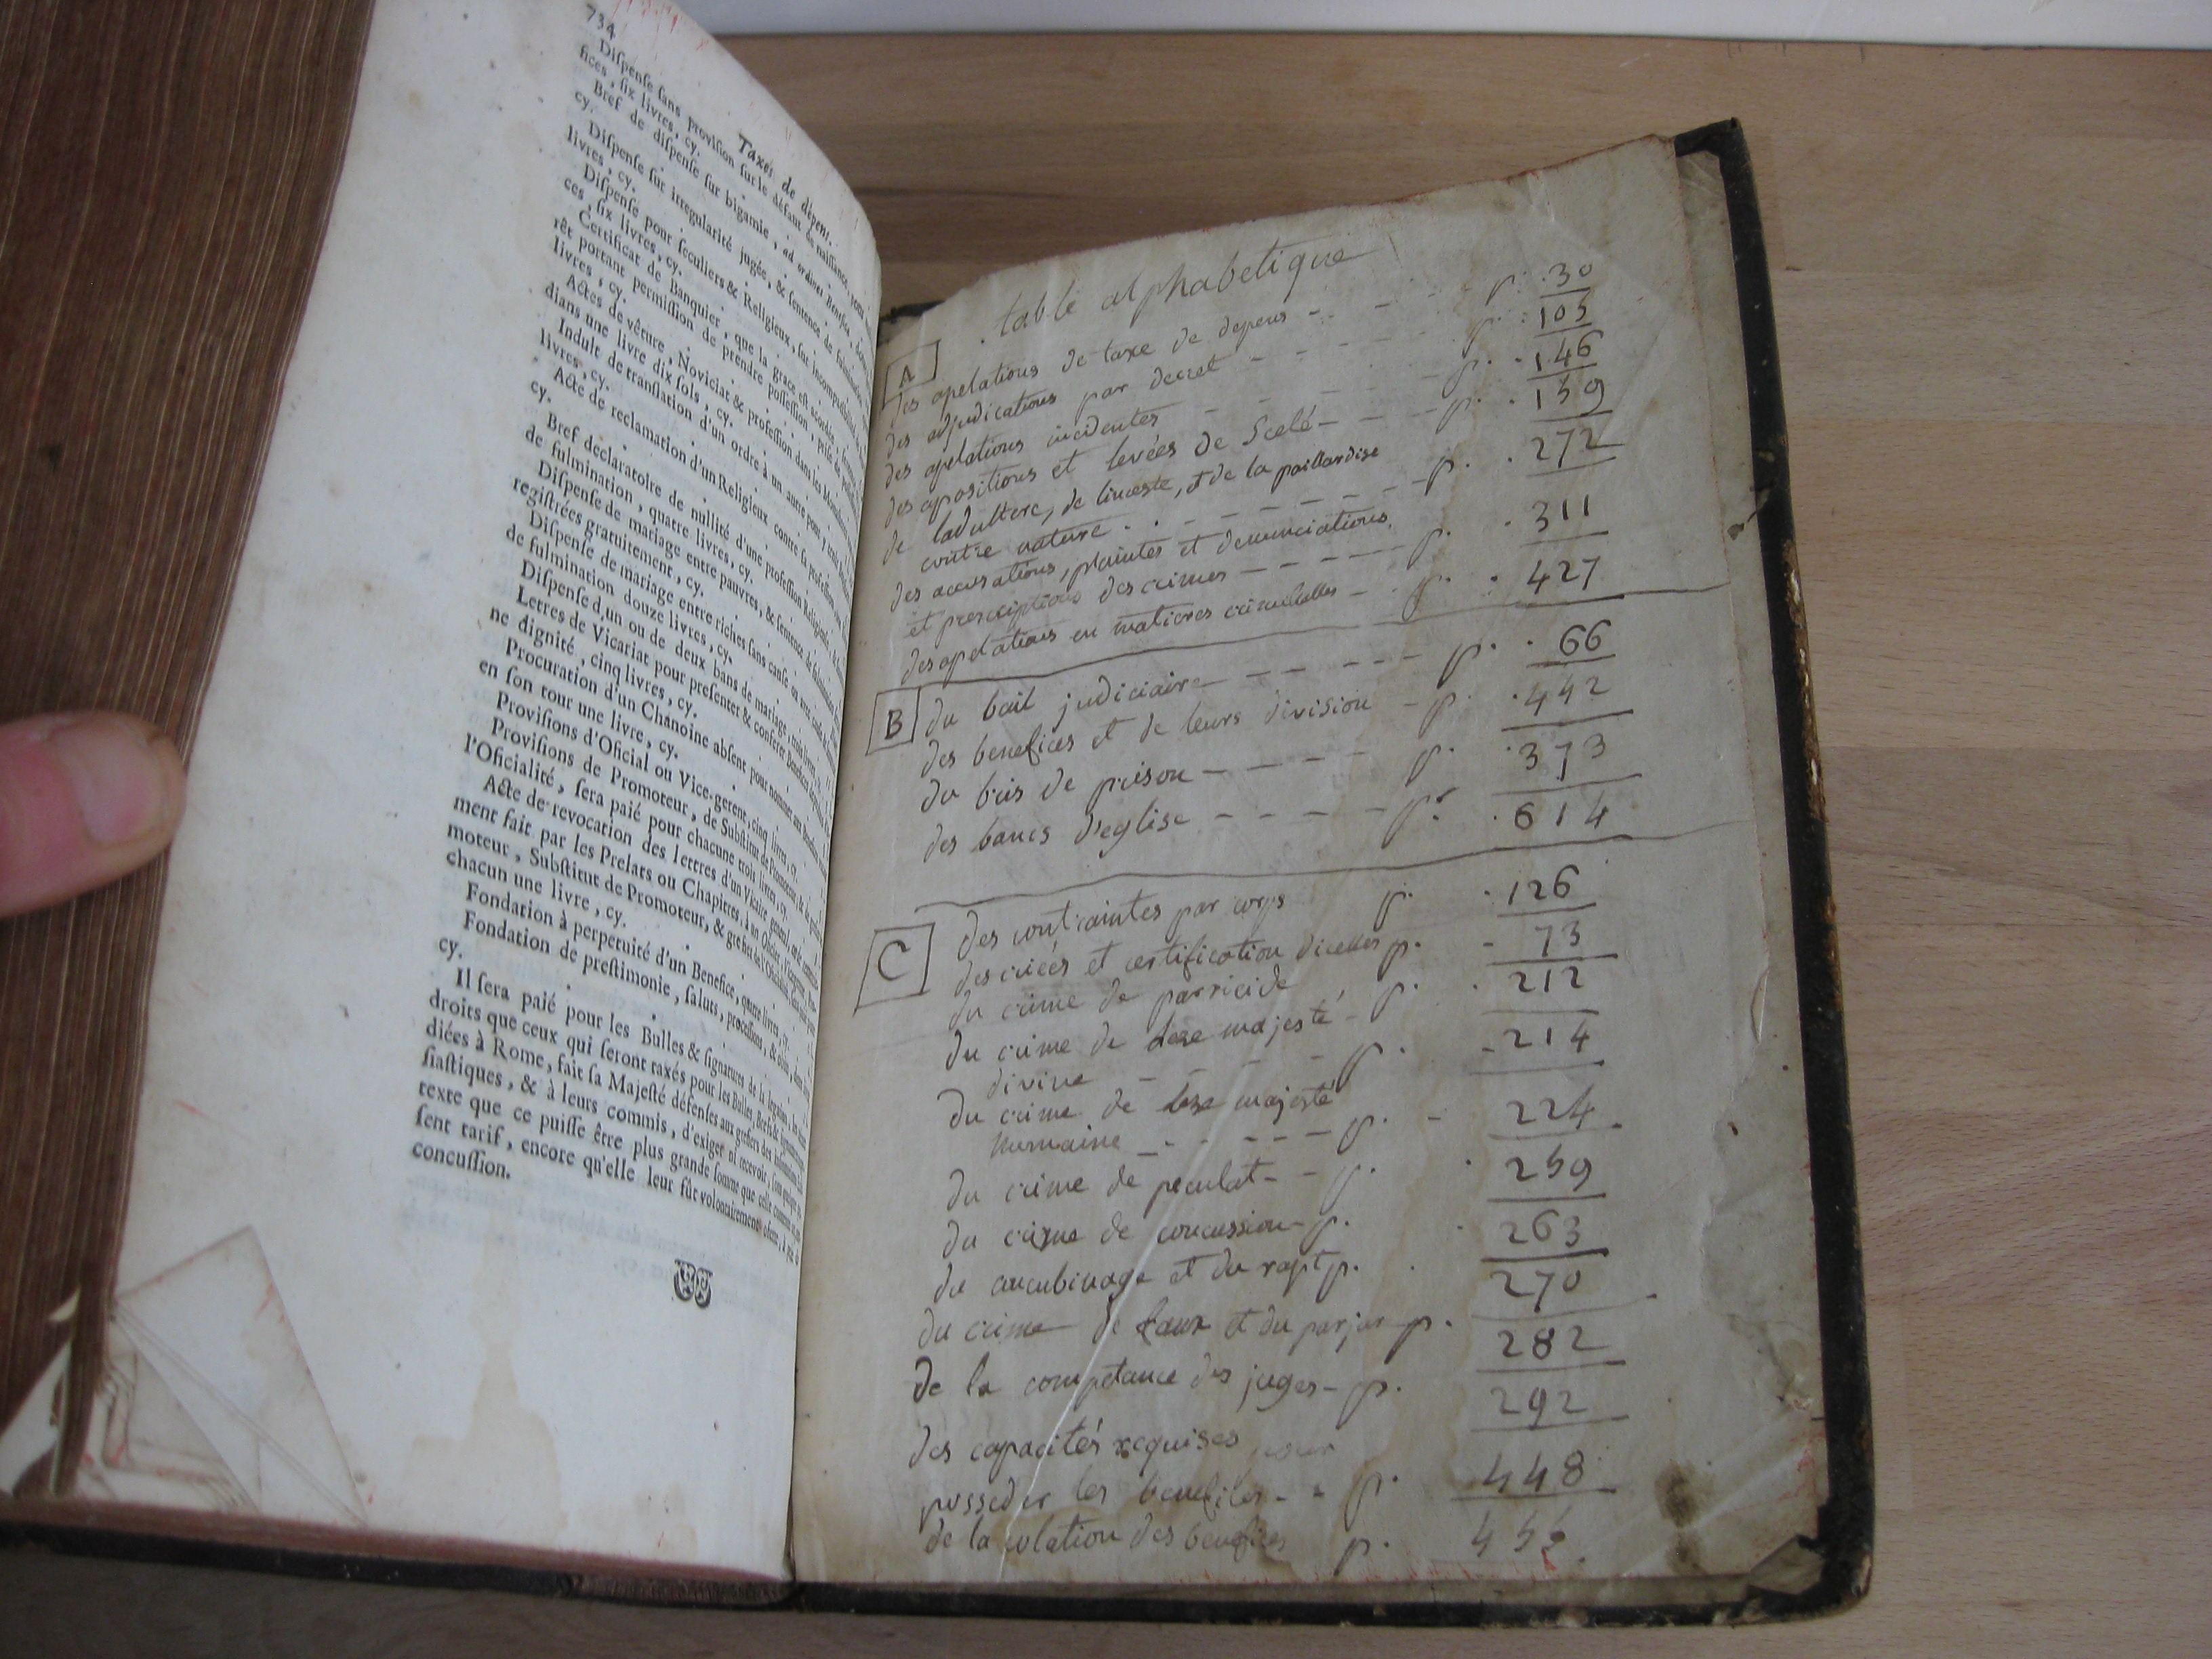 734
Taxes de dépens.
Diſpenſe ſans proviſion ſur le défaut de naiſſance, pour
fices, ſix livres, cy.
Bref de diſpenſe ſur bigamie, ad ordines
cy.
Diſpenſe ſur irregularité jugée, & ſentence de fulmination
livres, cy.
Diſpenſe pour ſeculiers & Religieux, ſur incompatibilité
ces, ſix livres, cy.
Certificat de Banquier, que la grace eſt accordée,
rêt portant permiſſion de prendre poſſeſſion, priſe de
livres, cy.
Actes de vêture, Noviciat & profeſſion dans les
dians une livre dix ſols, cy.
Indult de tranſlation d'un ordre à un autre pour, trois
livres, cy.
Acte de reclamation d'un Religieux contre ſa profeſſion
cy.
Bref declaratoire de nullité d'une profeſſion Religieuſe,
de fulmination, quatre livres, cy.
Diſpenſe de mariage entre pauvres, & ſentence de fulmination
regiſtrées gratuitement, cy.
Diſpenſe de mariage entre riches ſans cauſe ou avec cauſe
de fulmination douze livres, cy.
Diſpenſe d'un ou de deux bans de mariage, trois livres
Letres de Vicariat pour preſenter & conferer
ne dignité, cinq livres, cy.
Procuration d'un Chanoine abſent pour nommer aux
en ſon tour une livre, cy.
Proviſions d'Oficial ou Vice-gerent, cinq livres, cy.
Proviſions de Promoteur, de Subſtitut de Promoteur, &
l'Oficialité, ſera paié pour chacune trois livres, cy.
Acte de revocation des lettres d'un Vicaire general,
ment fait par les Prelats ou Chapitres, à un Oficial, Vicegerent,
moteur, Subſtitut de Promoteur, & grefier de l'Oficialité,
chacun une livre, cy.
Fondation à perpetuité d'un Benefice, quatre livres, cy.
Fondation de preſtimonie, ſaluts, proceſſions, &
cy.
Il ſera paié pour les Bulles & ſignatures de la legation, les
droits que ceux qui ſeront taxés pour les Bulles, Brefs &
diées à Rome, fait ſa Majeſté défenſes aux grefiers des
ſiaſtiques, & à leurs commis, d'exiger ni recevoir, ſous
texte que ce puiſſe être plus grande ſomme que celle
ſent tarif, encore qu'elle leur fût volontairement oferte, à
concuſſion.
table alphabetique
A
des apelations de taxe de depens - - - p. 30
des adjudications par decret - - - p. 105
des apelations incidentes - - - p. 146
des apositions et levées de Scelé - - - p. 159
de ladultere, de linceste, et de la paillardise
contre nature - - - p. 272
des accusations, plaintes et denunciations
et prescriptions des crimes - - - p. 311
des apelations en matieres criminelles - p. 427
B
du bail judiciaire - - - p. 66
des benefices et de leurs division - p. 442
du bris de prison - - - p. 373
des bancs d'eglise - - - p. 614
C
des contraintes par corps p. 126
des criées et certification dicelles p. 73
du crime de parricide p. 212
du crime de leze majesté
divine - - - p. 214
du crime de leze majesté
humaine - - - p. 224
du crime de peculat - - p. 259
du crime de concussion - p. 263
du concubinage et du rapt p. 270
du crime de faux et du parjur p. 282
de la competance des juges - p. 292
des capacités requises pour
posseder les benefices - - p. 448
de la colation des benefices p.